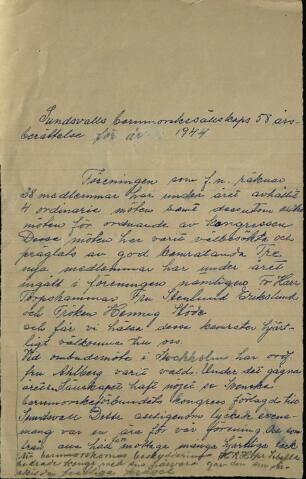 Sundsvalls barnmorskesällskaps 58 års-
berättelse för år 1944
Föreningen som f.n. räknar
38 medlemmar har under året avhållit
4 ordinarie möten samt dessutom extra
möten för ordnande av kongressen
Dessa möten har varit välbesökta och
präglats av god kamratanda Tre
nya medlemmar har under året
ingått i föreningen nämligen Fr
Torpshammar Fru Stenlund Erikslund
och Fröken Henning
och får vi hälsa dessa kamrater hjärt-
ligt välkomna till oss.
Vid ombudsmöte i Stockholm har
fru Ahlberg varit vald. Under det gångna
året Sällskapet haft nöjet se Svenska
barnmorskeförbundets kongress förlagd till
Sundsvall Detta
mang var en ära för vår förening.
från mottaga många hjärtliga tack
barnmorskornas beskyddarinna